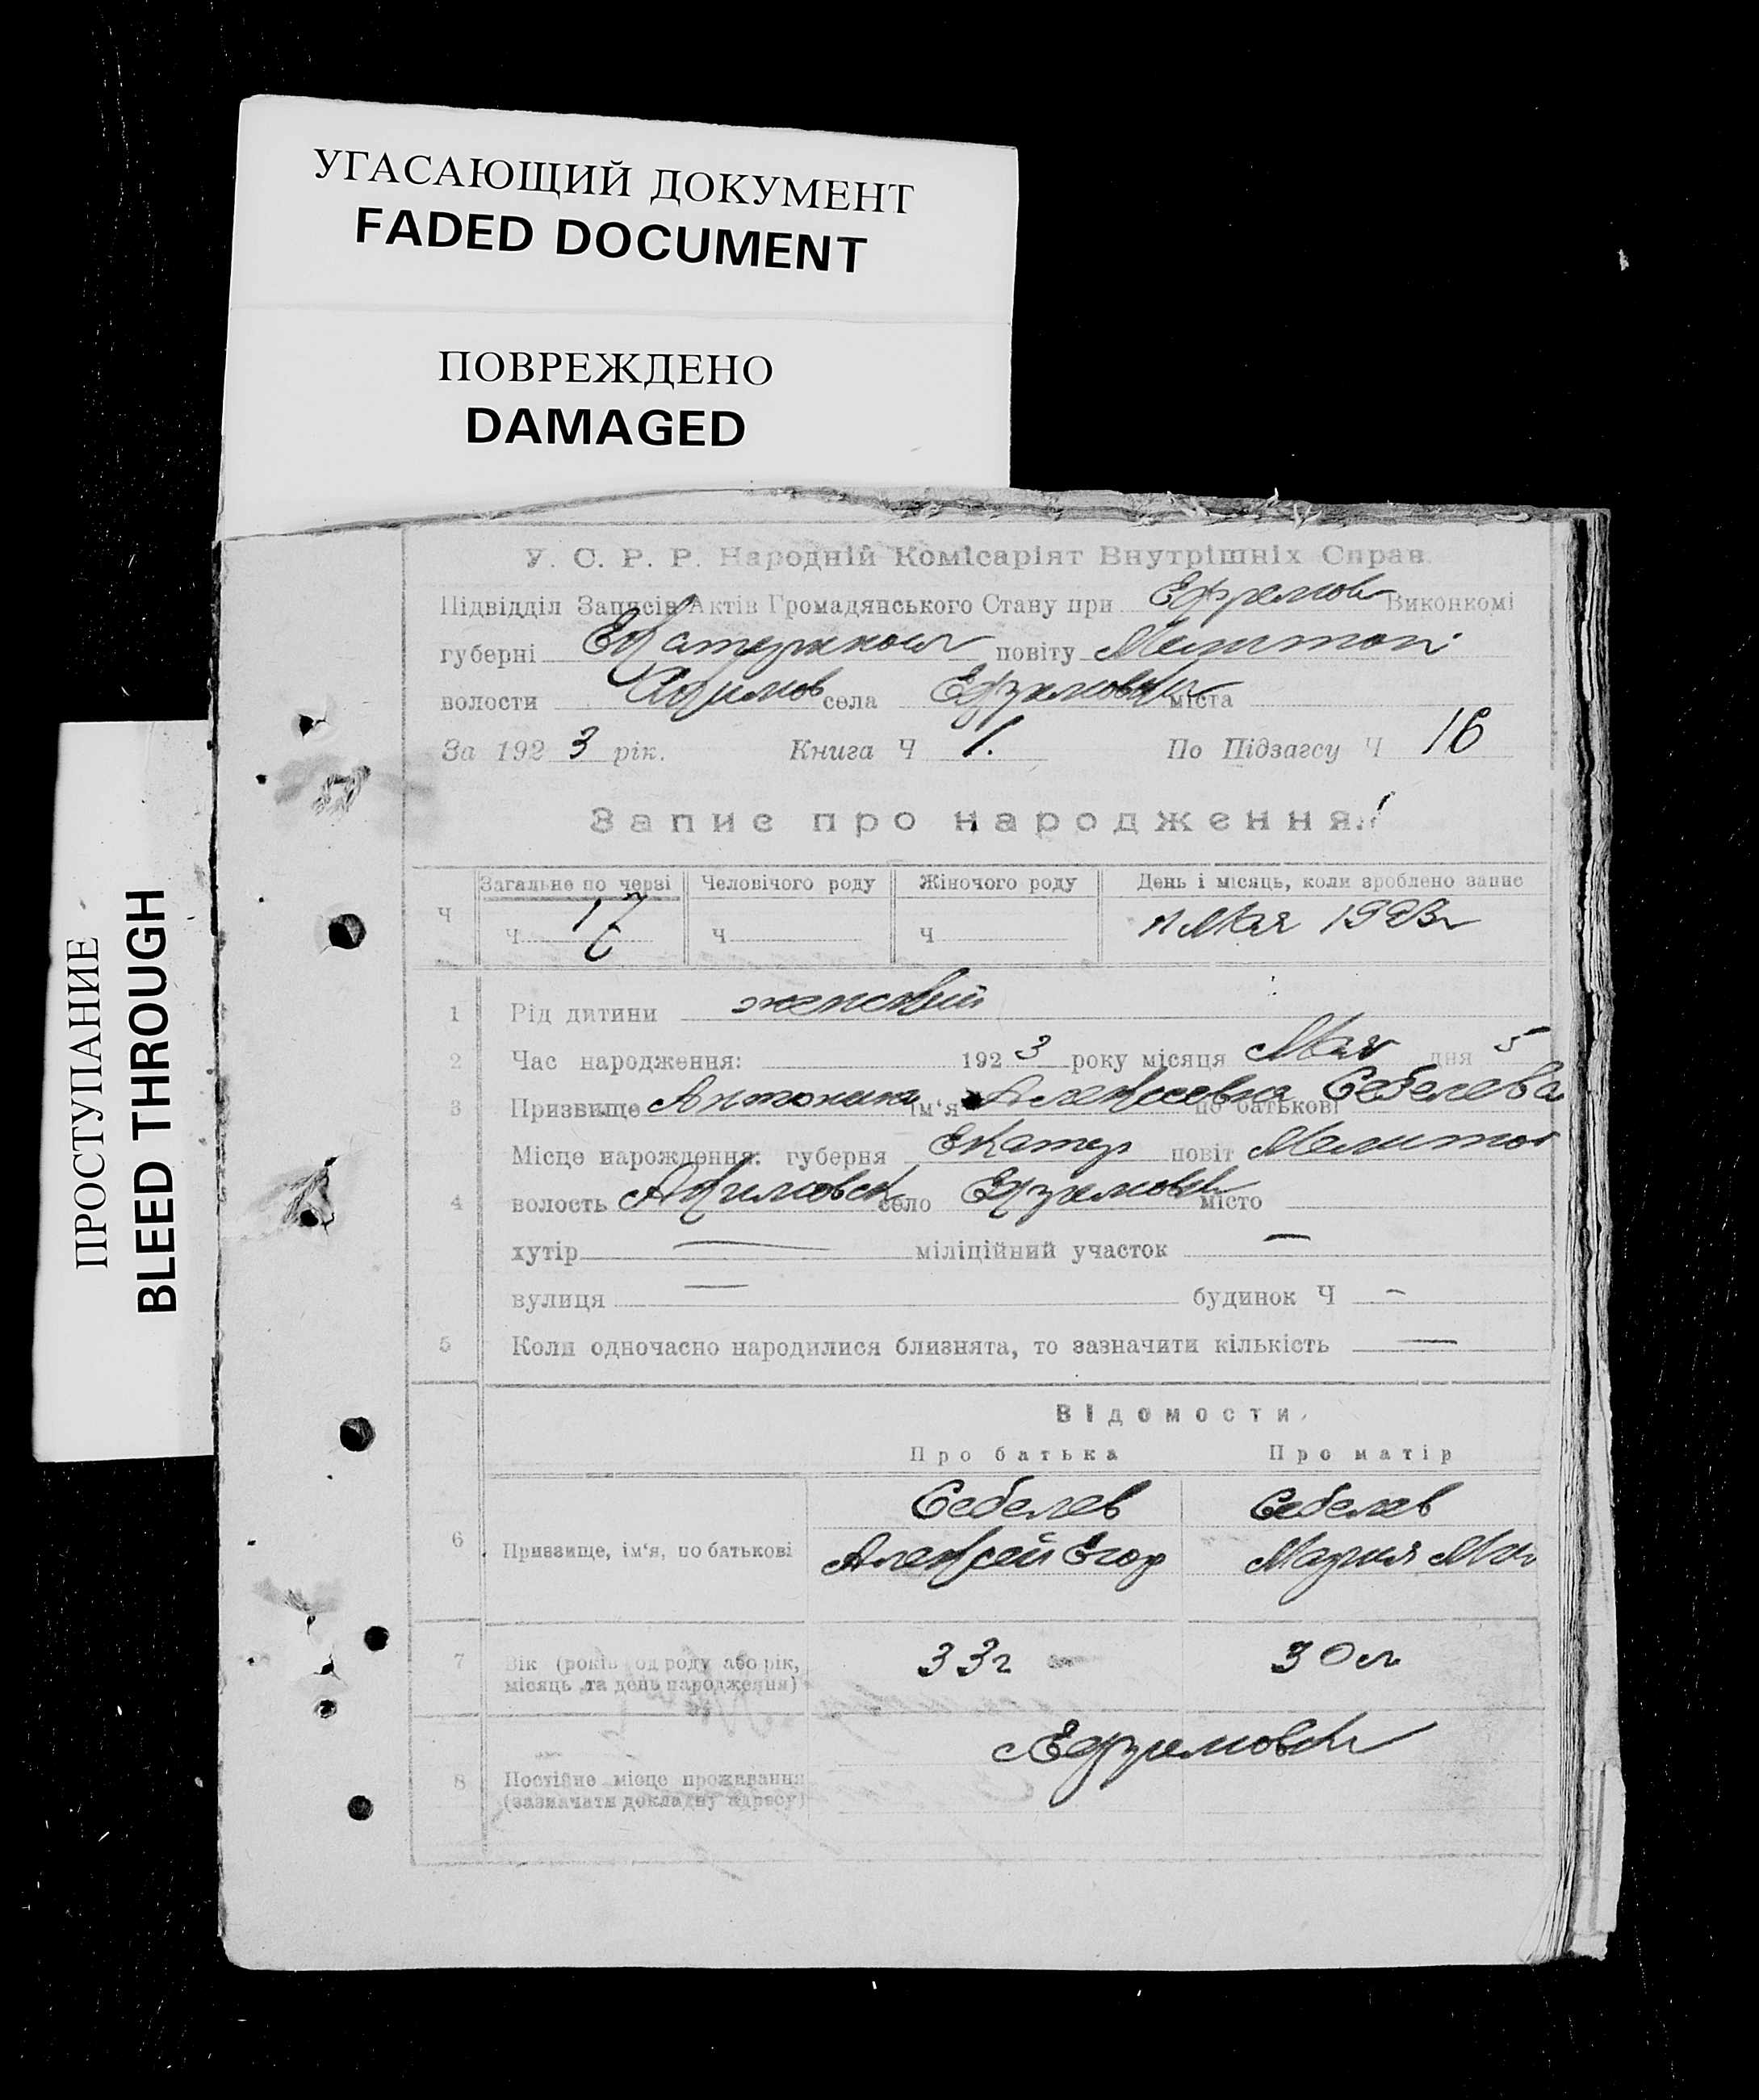 УГАСАЮЩИЙ ДОКУМЕНТ
FADED DOCUMENT
ПОВРЕЖДЕНО
DAMAGED
ПРОСТУПАНИЕ
BLEED THROUGH
У. С. Р. Р. Народній Комісаріят Внутрішніх Справ.
Підвідділ Записів Актів Громадянського Стану при Ефремов Виконкомі
губерні Екатеринос повіту Мелитоп
волости Акимов села Ефремовки міста
За 192 3 рік. Книга Ч 1. По Підзагсу Ч 16
Запис про народження.
Загальне по черзі Человічого роду Жіночого роду День і місяць, коли зроблено запис
Ч Ч 17 Ч Ч 11 Мая 1923г
1 Рід дитини женский
2 Час народження: 192 3 року місяця Мая дня 5
3 Призвище Антонина ім'я Алексеевна по батькові Себелева
Місце нарождення: губерня Екатер повіт Мелитоп
4 волость Акимовск село Ефремовк місто
хутір — міліційний участок —
вулиця — будинок Ч -
5 Коли одночасно народилися близнята, то зазначити кількість —
Відомости.
Про батька Про матір
Себелев Себелев
6 Призвище, ім'я, по батькові Алексей Егор Мария
7 Вік (років од роду або рік, 33г 30 л
місяць та день народження)
Ефремовки
8 Постійне місце проживання
(зазначати докладну адресу)